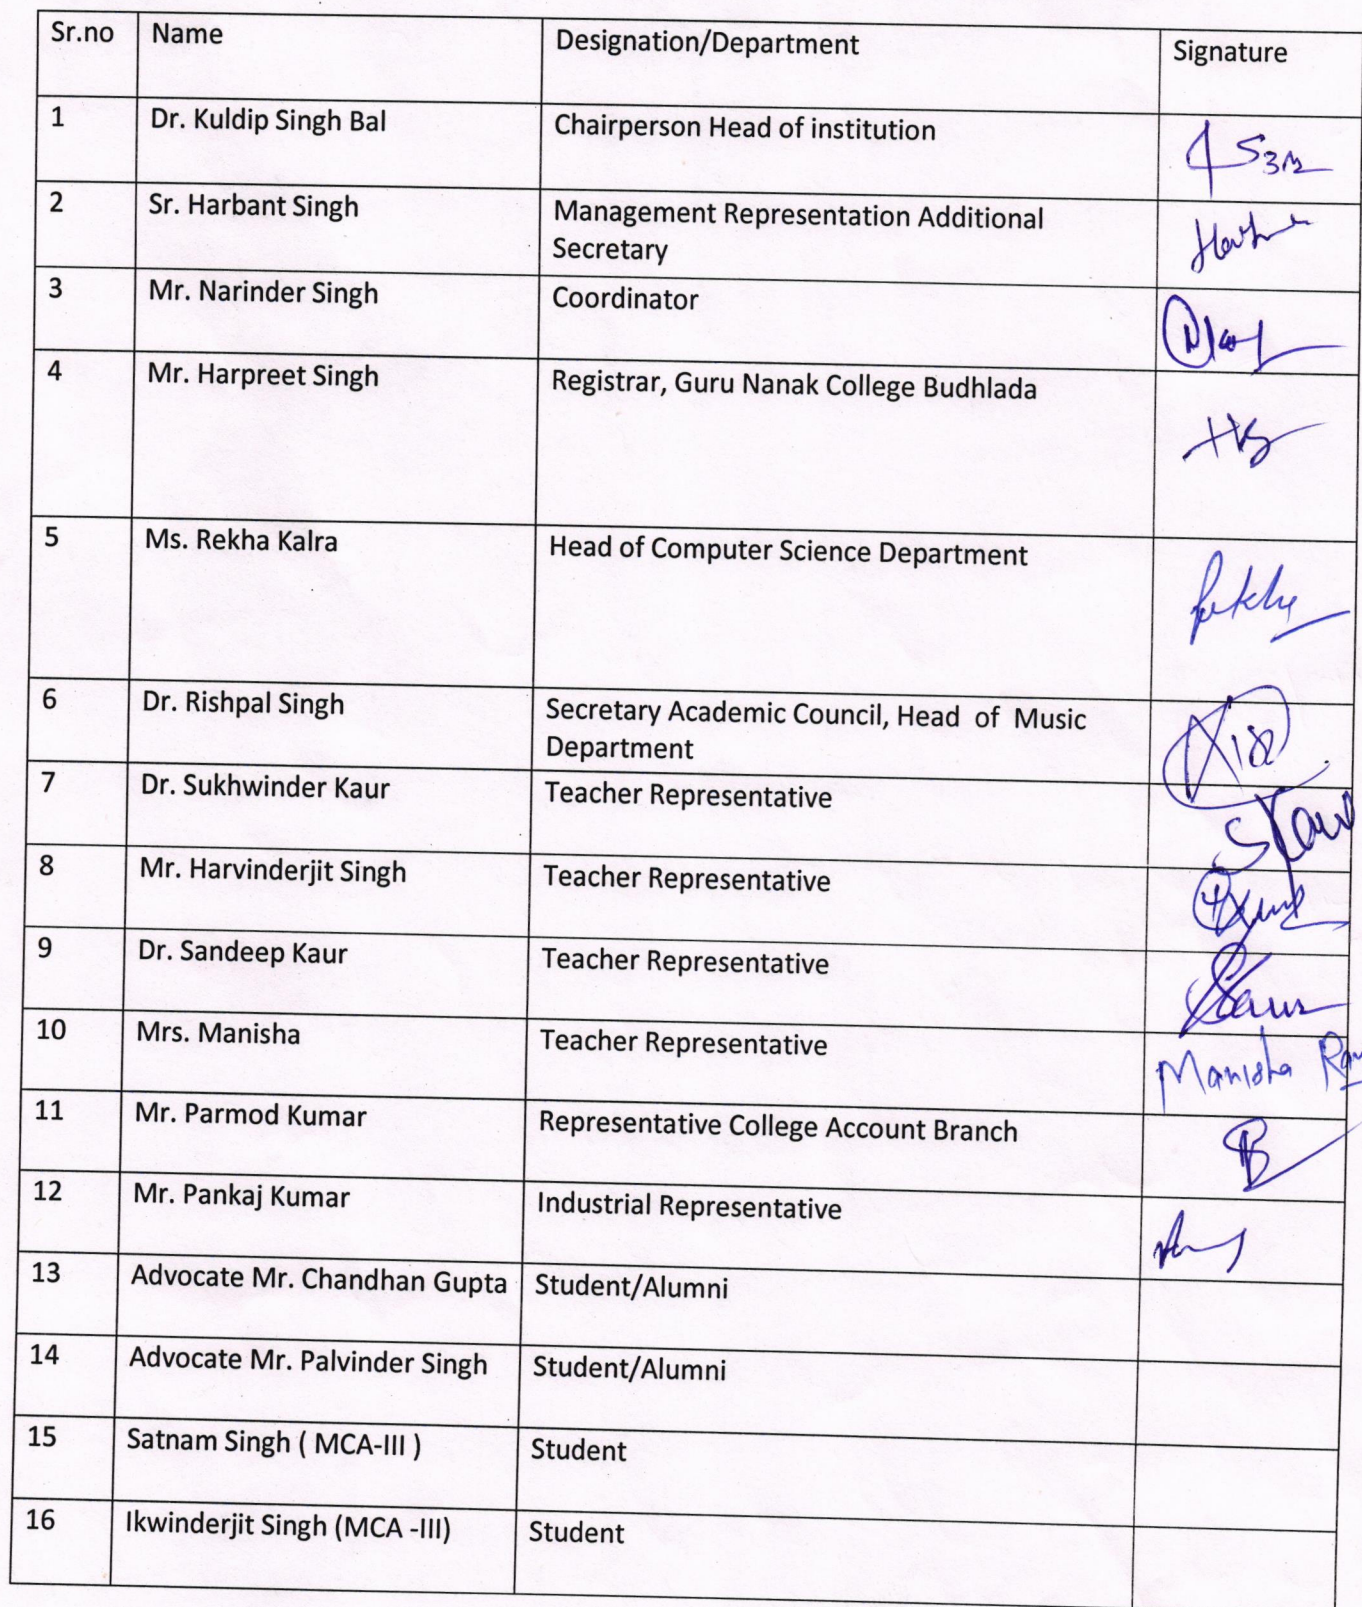 Sr.no Name Designation/Department Signature
1 Dr. Kuldip Singh Bal Chairperson Head of institution
2 Sr. Harbant Singh Management Representation Additional
Secretary
3 Mr. Narinder Singh Coordinator
4 Mr. Harpreet Singh Registrar, Guru Nanak College Budhlada
5 Ms. Rekha Kalra Head of Computer Science Department
6 Dr. Rishpal Singh Secretary Academic Council, Head of Music
Department
7 Dr. Sukhwinder Kaur Teacher Representative SKaur
8 Mr. Harvinderjit Singh Teacher Representative
9 Dr. Sandeep Kaur Teacher Representative
10 Mrs. Manisha Teacher Representative Manisha
11 Mr. Parmod Kumar Representative College Account Branch
12 Mr. Pankaj Kumar Industrial Representative
13 Advocate Mr. Chandhan Gupta Student/Alumni
14 Advocate Mr. Palvinder Singh Student/Alumni
15 Satnam Singh ( MCA-III ) Student
16 Ikwinderjit Singh (MCA -III) Student